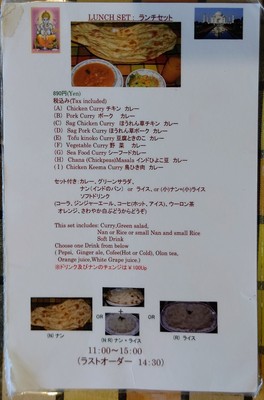 LUNCH SET : ランチセット
890円(Yen)
税込み(Tax included)
(A) Chicken Curry チキン カレー
(B) Pork Curry ポーク カレー
(C) Sag Chicken Curry ほうれん草チキン カレー
(D) Sag Pork Curry ほうれん草ポーク カレー
(E) Tofu kinoko Curry 豆腐ときのこ カレー
(F) Vegetable Curry 野 菜 カレー
(G) Sea Food Curry シーフードカレー
(H) Chana (Chickpeas)Masala インドひよこ豆 カレー
(I) Chicken Keema Curry 鳥ひき肉 カレー
セット付き:カレー, グリーンサラダ,
ナン(インドのパン) or ライス, or (小)ナン+(小)ライス
ソフトドリンク
(コーラ, ジンジャーエール, コーヒ(ホット, アイス), ウーロン茶
オレンジ、さわやか白ぶどうからどうぞ)
This set includes: Curry,Green salad,
Nan or Rice or small Nan and small Rice
Soft Drink
Choose one Drink from below
( Pepsi, Ginger ale, Cofee(Hot or Cold), Olon tea,
Orange juice,White Grape juice.)
※ドリンク及びナンのチェンジは¥100Up
OR + OR
(N) ナン (N R) ナン + ライス (R) ライス
11:00～15:00
(ラストオーダー 14:30)